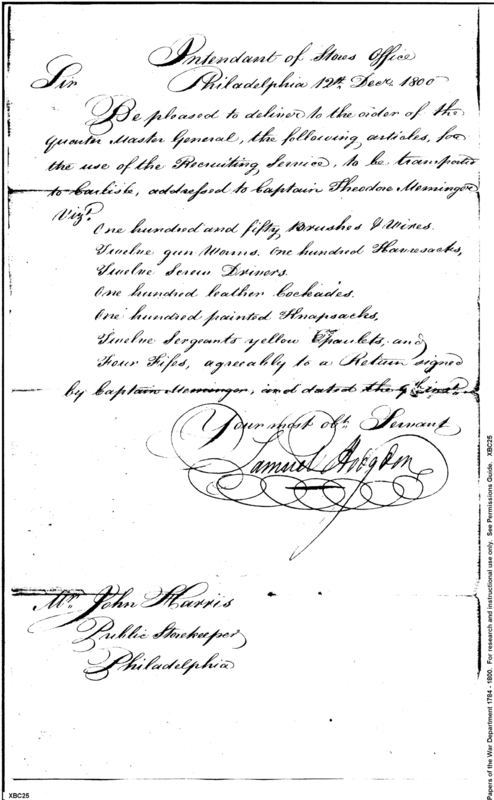 Intendant of Stores Office
Philadelphia 12th. Decr. 1800
Sir
Be pleased to deliver to the order of the
Quarter Master General, the following articles, for
the use of the Recruiting Service, to be transported
to Carlisle, addressed to Captain Theodore Memminger
Vizt.
One hundred and fifty Brushes & Wires.
Twelve gun Worms. One hundred Haversacks,
Twelve Screw Drivers.
One hundred leather Cockades.
One hundred painted Knapsacks,
Twelve Sergeants yellow Epaulets, and
Four Fifes, agreeably to a Return signed
by Captain Memminger, and dated the 9
Your most obt. Servant
Samuel Hodgdon
Mr. John Harris
Public Storekeeper
Philadelphia
XBC25
Papers of the War Department 1784 - 1800. For research and instructional use only. See Permissions Guide. XBC25